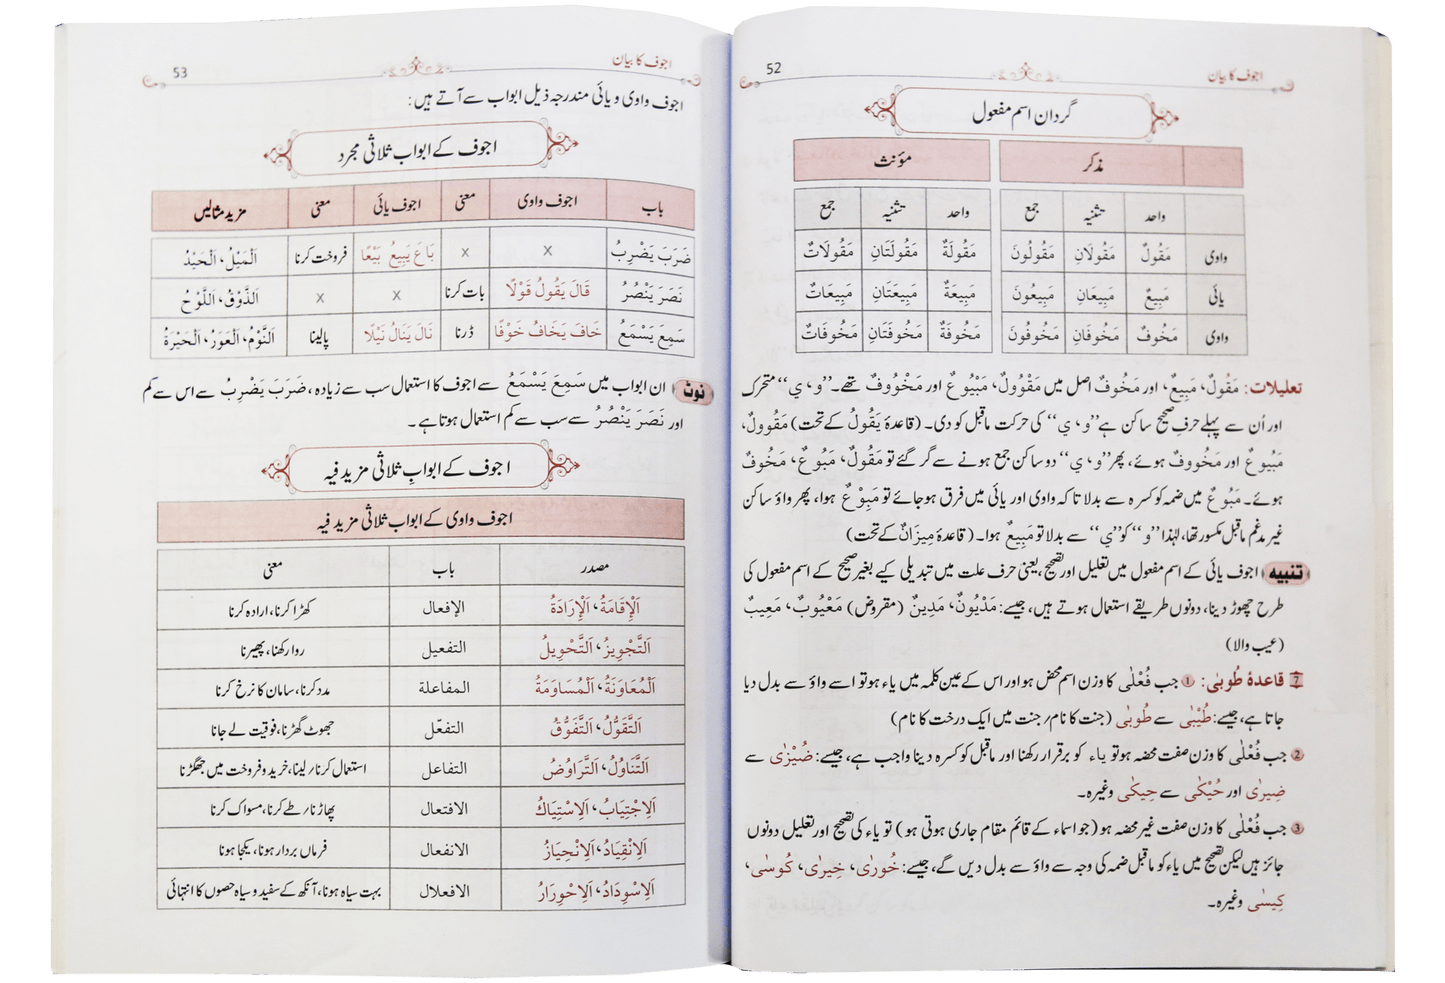 اجوف کا بیان
52
گردان اسم مفعول
مذکر مؤنث
واحد تثنیہ جمع واحد تثنیہ جمع
واوی مَقُولٌ مَقُولَانِ مَقُولُونَ مَقُولَةٌ مَقُولَتَانِ مَقُولَاتٌ
یائی مَبِيعٌ مَبِيعَانِ مَبِيعُونَ مَبِيعَةٌ مَبِيعَتَانِ مَبِيعَاتٌ
واوی مَخُوفٌ مَخُوفَانِ مَخُوفُونَ مَخُوفَةٌ مَخُوفَتَانِ مَخُوفَاتٌ
تعلیلات: مَقُولٌ، مَبِيعٌ، اور مَخُوفٌ اصل میں مَقْوُولٌ، مَبْيُوعٌ اور مَخْوُوفٌ تھے۔ ”و، ي“ متحرک
اور اُن سے پہلے حرفِ صحیح ساکن ہے ”و، ي“ کی حرکت ماقبل کو دی۔ (قاعدۂ يَقُولُ کے تحت) مَقُوولٌ،
مَبُيوعٌ اور مَخُووفٌ ہوئے، پھر ”و، ي“ دو ساکن جمع ہونے سے گر گئے تو مَقُولٌ، مَبُوعٌ، مَخُوفٌ
ہوئے۔ مَبُوعٌ میں ضمہ کو کسرہ سے بدلا تاکہ واوی اور یائی میں فرق ہوجائے تو مَبِوْعٌ ہوا، پھر واؤ ساکن
غیر مدغم ماقبل مکسور تھا، لہٰذا ”و“ کو ”ي“ سے بدلا تو مَبِيعٌ ہوا۔ (قاعدۂ مِيزَانٌ کے تحت)
تنبیہ اجوف یائی کے اسم مفعول میں تعلیل اور تصحیح، یعنی حرف علت میں تبدیلی کیے بغیر صحیح کے اسم مفعول کی
طرح چھوڑ دینا، دونوں طریقے استعمال ہوتے ہیں، جیسے: مَدْيُونٌ، مَدِينٌ (مقروض) مَعْيُوبٌ، مَعِيبٌ
(عیب والا)
7 قاعدۂ طُوبٰی: 1 جب فُعْلٰی کا وزن اسم محض ہو اور اس کے عین کلمہ میں یاء ہو تو اسے واؤ سے بدل دیا
جاتا ہے، جیسے: طُيْبٰی سے طُوبٰی (جنت کا نام/ جنت میں ایک درخت کا نام)
2 جب فُعْلٰی کا وزن صفت محضہ ہو تو یاء کو برقرار رکھنا اور ماقبل کو کسرہ دینا واجب ہے، جیسے: ضُيْزٰی سے
ضِيزٰی اور حُيْكٰی سے حِيكٰی وغیرہ۔
3 جب فُعْلٰی کا وزن صفت غیر محضہ ہو (جو اسماء کے قائم مقام جاری ہوتی ہو) تو یاء کی تصحیح اور تعلیل دونوں
جائز ہیں لیکن تصحیح میں یاء کو ماقبل ضمہ کی وجہ سے واؤ سے بدل دیں گے، جیسے: خُورٰی، خِيرٰی، كُوسٰی،
كِيسٰی وغیرہ۔
اجوف کا بیان
53
اجوف واوی و یائی مندرجہ ذیل ابواب سے آتے ہیں:
اجوف کے ابواب ثلاثی مجرد
باب اجوف واوی معنی اجوف یائی معنی مزید مثالیں
ضَرَبَ يَضْرِبُ x x بَاعَ يَبِيعُ بَيْعًا فروخت کرنا اَلْمَيْلُ، اَلْحَيْدُ
نَصَرَ يَنْصُرُ قَالَ يَقُولُ قَوْلًا بات کرنا x x اَلذَّوْقُ، اَللَّوْحُ
سَمِعَ يَسْمَعُ خَافَ يَخَافُ خَوْفًا ڈرنا نَالَ يَنَالُ نَيْلًا پالینا اَلنَّوْمُ، اَلْعَوَرُ، اَلْحَيْرَةُ
نوٹ ان ابواب میں سَمِعَ يَسْمَعُ سے اجوف کا استعمال سب سے زیادہ، ضَرَبَ يَضْرِبُ سے اس سے کم
اور نَصَرَ يَنْصُرُ سے سب سے کم استعمال ہوتا ہے۔
اجوف کے ابوابِ ثلاثی مزید فیہ
اجوف واوی کے ابواب ثلاثی مزید فیہ
مصدر باب معنی
اَلْإِقَامَةُ، اَلْإِرَادَةُ الإفعال کھڑا کرنا، ارادہ کرنا
اَلتَّجْوِيزُ، اَلتَّحْوِيلُ التفعيل روا رکھنا، پھیرنا
اَلْمُعَاوَنَةُ، اَلْمُسَاوَمَةُ المفاعلة مدد کرنا، سامان کا نرخ کرنا
اَلتَّقَوُّلُ، اَلتَّفَوُّقُ التفعّل جھوٹ گھڑنا، فوقیت لے جانا
اَلتَّنَاوُلُ، اَلتَّرَاوُضُ التفاعل استعمال کرنا/ لینا، خرید و فروخت میں جھگڑنا
اَلِاجْتِيَابُ، اَلِاسْتِيَاكُ الافتعال پھاڑنا/ طے کرنا، مسواک کرنا
اَلِانْقِيَادُ، اَلِانْحِيَازُ الانفعال فرماں بردار ہونا، یکجا ہونا
اَلِاسْوِدَادُ، اَلِاحْوِرَارُ الافعلال بہت سیاہ ہونا، آنکھ کے سفید و سیاہ حصوں کا انتہائی